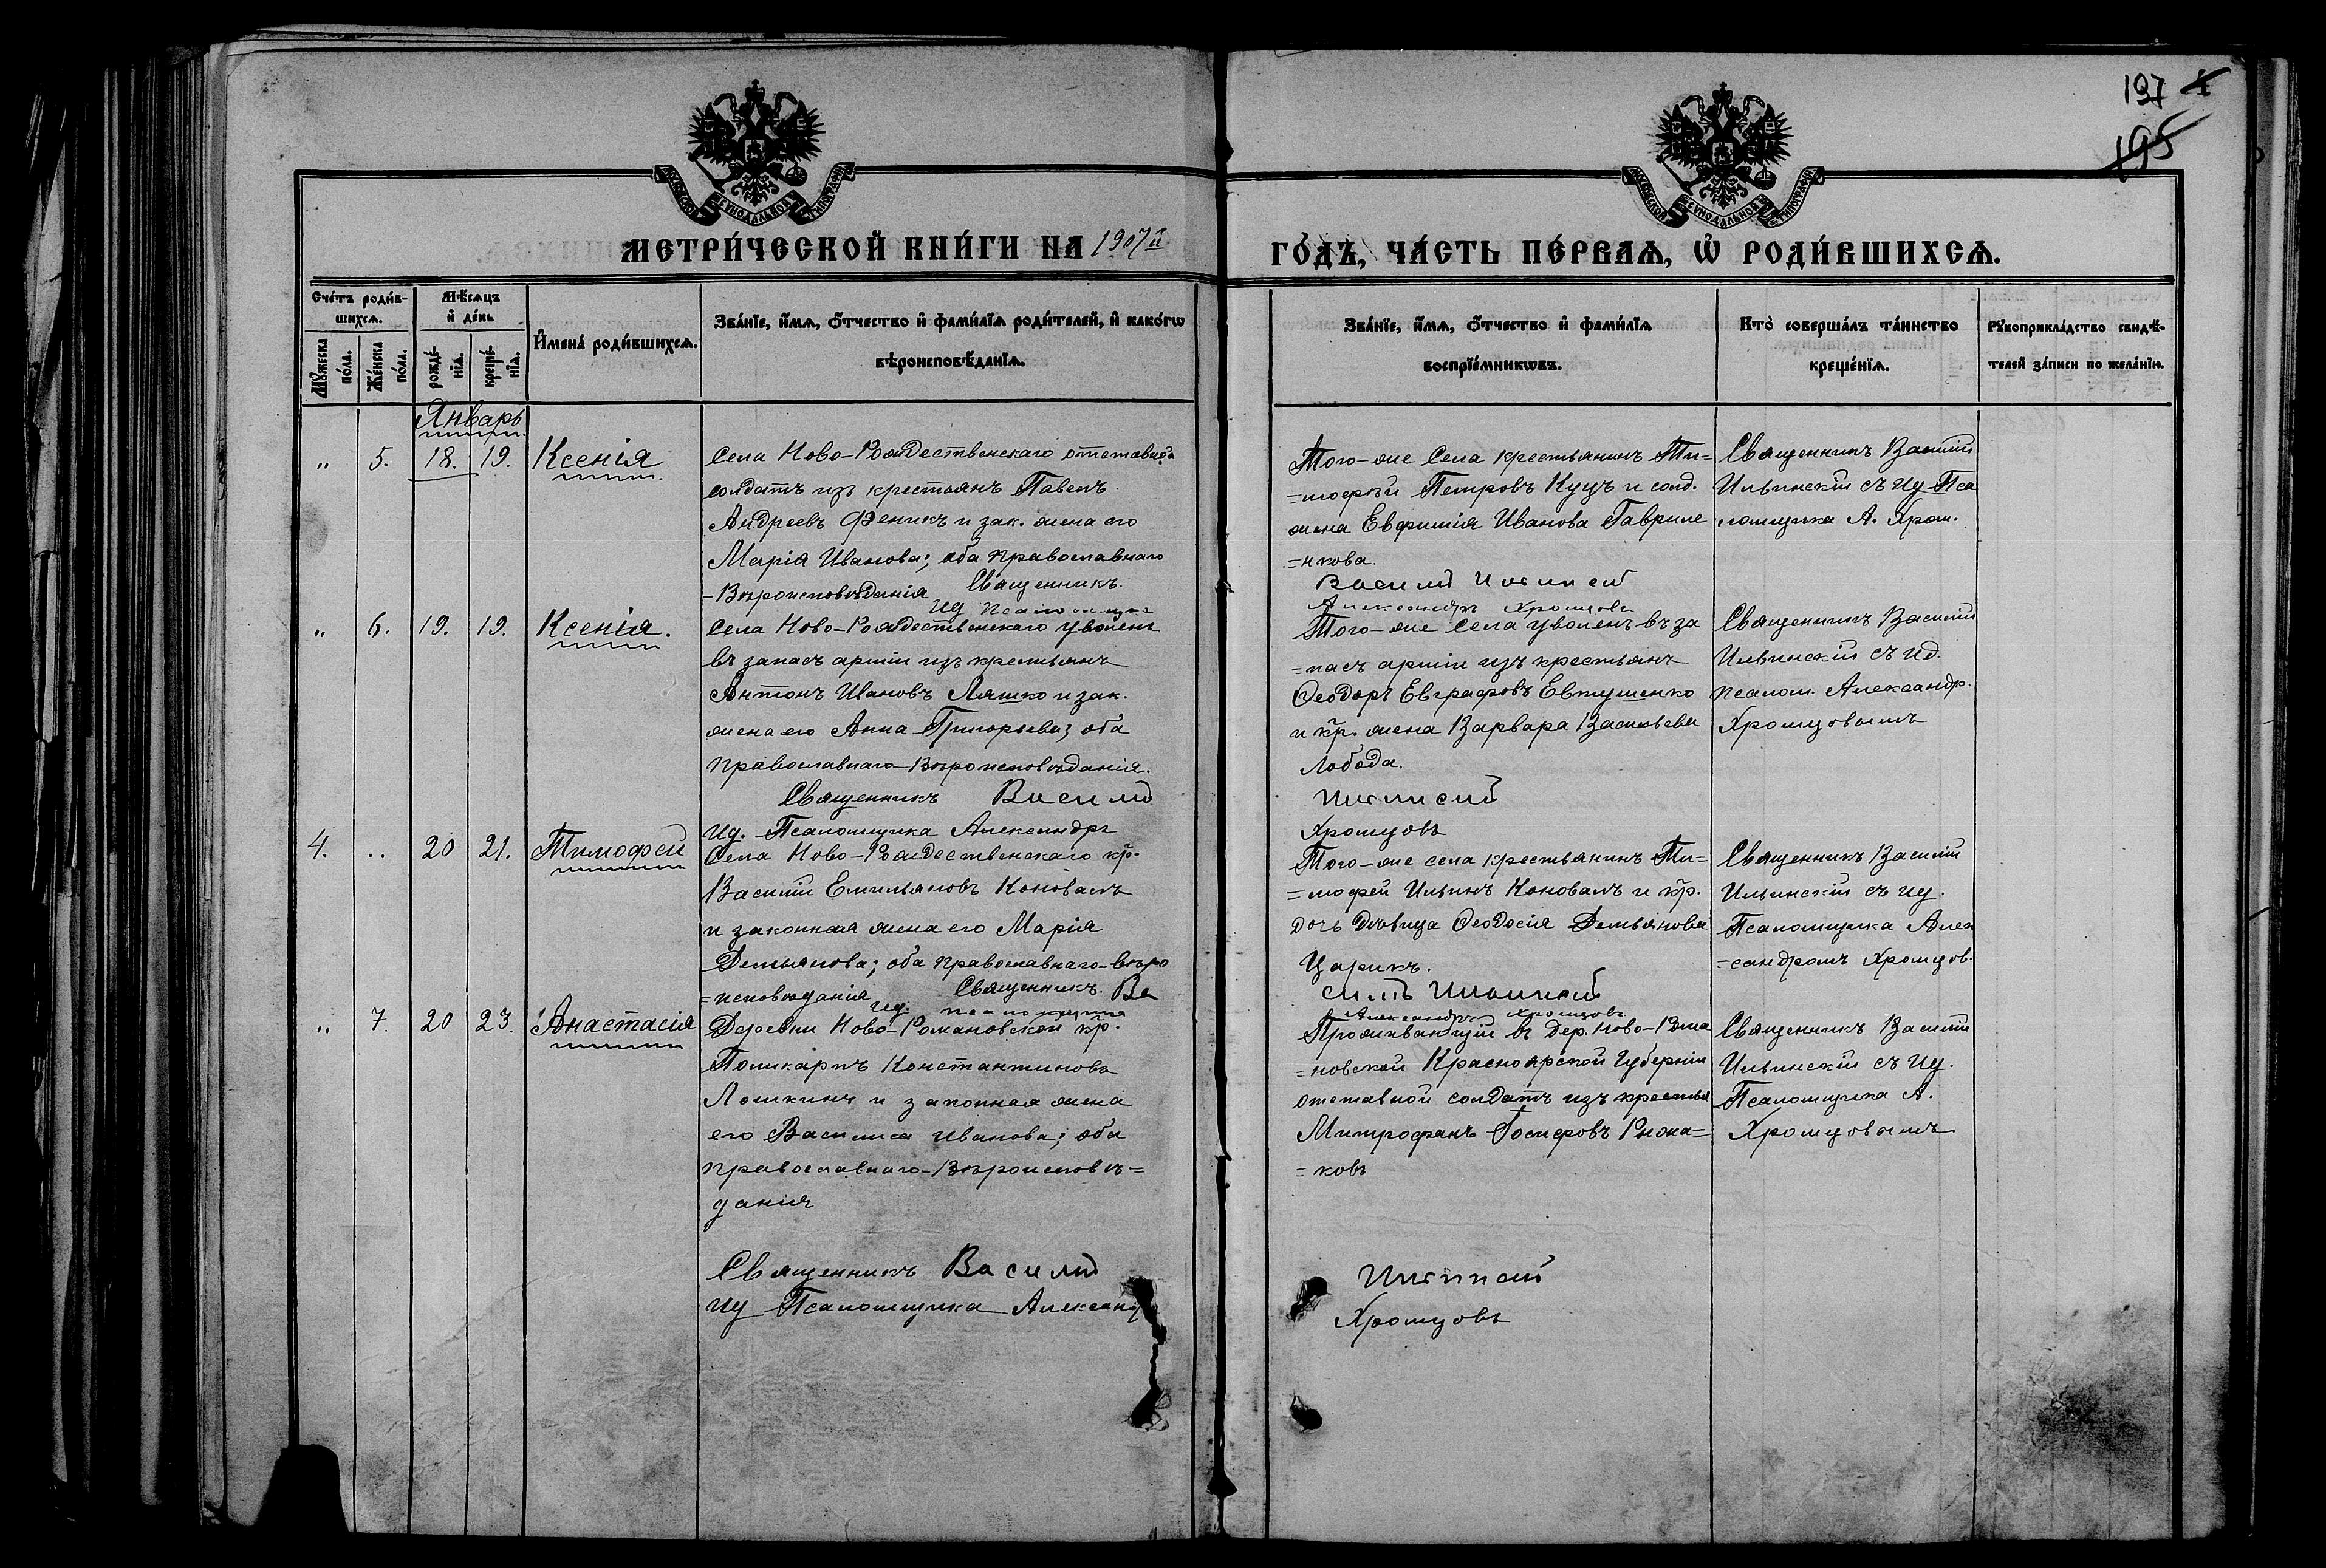 197 4
195
МОСКОВСКОЙ СУНОДАЛЬНОЙ ТИПОГРАФІИ
МОСКОВСКОЙ СУНОДАЛЬНОЙ ТИПОГРАФІИ
МЕТРИ́ЧЕСКОЙ КНИ́ГИ НА 1907й
ГО́ДЪ, ЧА́СТЬ ПЕ́РВАѦ, Ѡ РОДИ́ВШИХСѦ.
Сче́тъ роди́в-
шихсѧ.
Мѣ́сѧцъ
и де́нь
Мꙋ́жеска
по́ла.
Же́нска
по́ла.
рожде́-
нїѧ.
креще́-
нїѧ.
Имена́ роди́вшихсѧ.
Зва́нїе, и́мѧ, о́тчество и фами́лїѧ роди́телей, и како́гѡ
вѣроисповѣ́данїѧ.
Зва́нїе, и́мѧ, о́тчество и фами́лїѧ
воспрїе́мникѡвъ.
Кто̀ соверша́лъ та́инство
креще́нїѧ.
Рꙋкоприкла́дство свидѣ́-
телей за́писи по жела́нїю.
Январь
" 5. 18. 19. Ксенія
Села Ново-Рождественскаго отставной
солдатъ изъ крестьянъ Павелъ
Андреевъ Феникъ и зак. жена его
Марія Иванова; оба православнаго
-Вѣроисповѣданія Священникъ
ид Псаломщика
Того-же Села крестьянинъ Ти=
=мофѣй Петровъ Куцъ и солд.
жена Евфимія Иванова Гавриле
=нкова.
Василій Ильинскій
Александръ Хромцовъ
Священникъ Василій
Ильинскій съ ид Пса
ломщика А. Хром.
" 6. 19. 19. Ксенія.
Села Ново-Рождественскаго уволен
въ запасъ арміи изъ крестьянъ
Антонъ Ивановъ Ляшко и зак.
жена его Анна Григорьева; оба
православнаго-Вѣроисповѣданія.
Священникъ Василій
ид. Псаломщика Александръ
Того-же Села уволенъ въ за
=пасъ арміи изъ крестьянъ
Ѳеодоръ Евграфовъ Евтушенко
и кр. жена Варвара Васильева
Лобода.
Ильинскій
Хромцовъ
Священникъ Василій
Ильинскій съ ид.
псалом. Александр.
Хромцовымъ
4. .. 20 21. Тимофей
Села Ново-Рождественскаго кр.
Василій Емельяновъ Коновалъ
и законная жена его Марія
Демьянова; оба православнаго-вѣро
=исповѣданія Священникъ Ва
ид. псаломщика
Того-же села крестьянинъ Ти=
=мофей Ильинъ Коновалъ и кр.
дочь дѣвица Ѳеодосія Демьянова
Царикъ.
силій Ильинскій
Александръ Хромцовъ
Священникъ Василій
Ильинскій съ ид.
Псаломщика Алек
=сандромъ Хромцов.
" 7. 20 23. Анастасія
Деревни Ново-Романовской кр.
Поликарпъ Константиновъ
Лошкинъ и законная жена
его Василиса Иванова; оба
православнаго-Вѣроисповѣ=
данія
Проживающій въ дер. Ново-Рома
=новской Красноярской Губерніи
отставной солдатъ изъ крестья
Митрофанъ Іосифовъ Рыжа=
=ковъ
Священникъ Василій
Ильинскій съ ид.
Псаломщика А.
Хромцовымъ
Священникъ Василій
Ильинскій
ид Псаломщика Александ
Хромцовъ